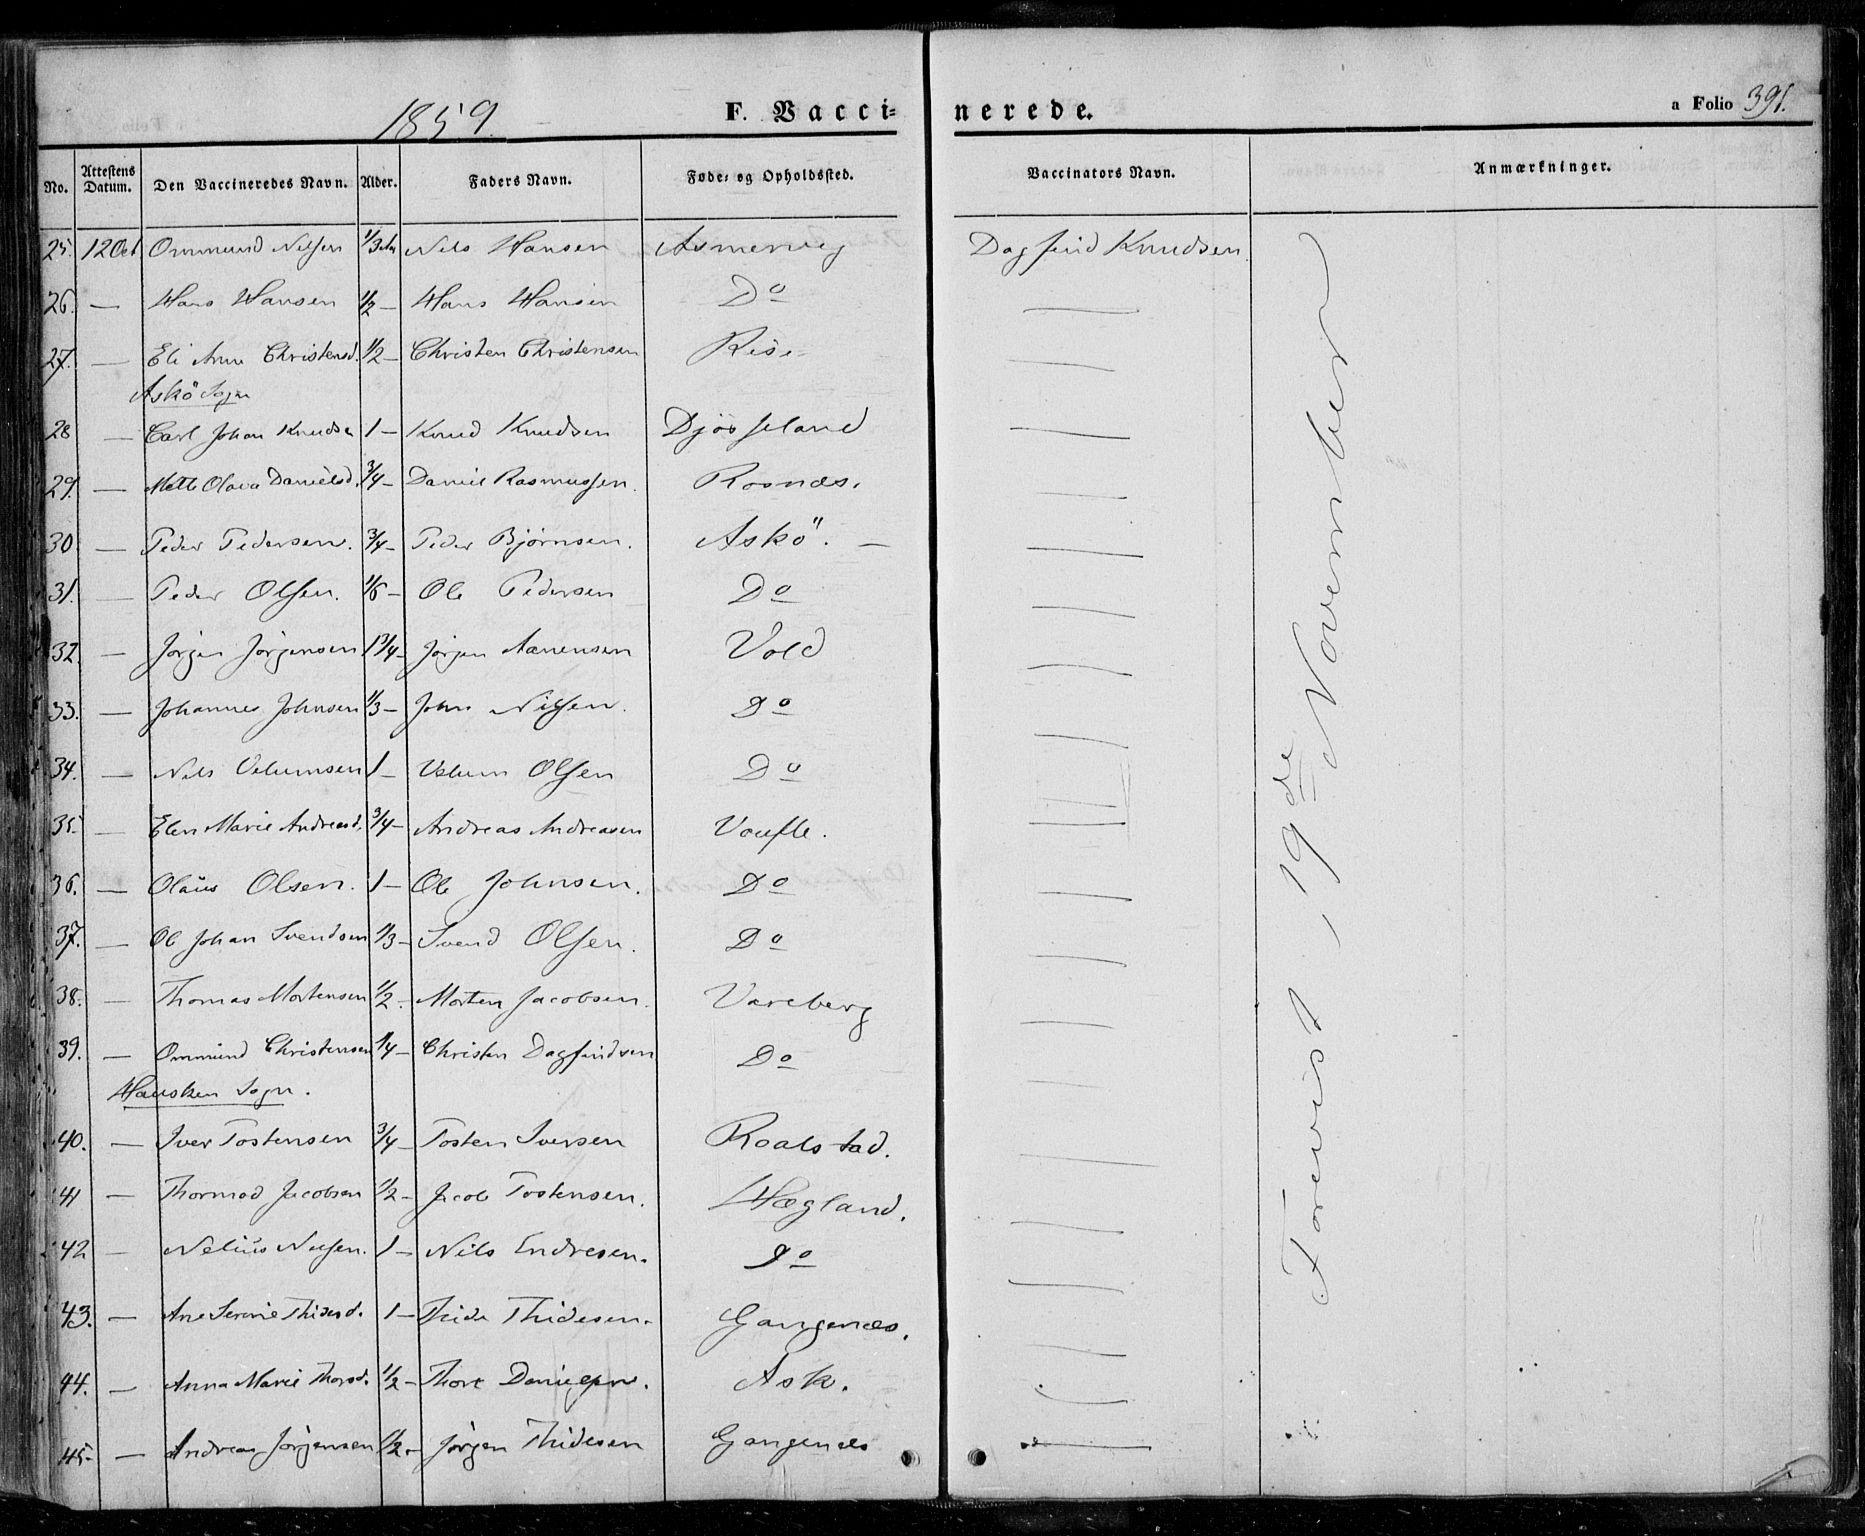 1859. F. Vacci= nerede. a Folio 391.
No. Attestens Datum. Den Vaccineredes Navn. Alder. Faders Navn. Føde= og Opholdssted. Vaccinators Navn. Anmærkninger.
25. 12 Oct Ommund Nilsen 1/3 Nils Hansen Asmervig Dagfind Knudsen.
26. — Hans Hansen 1/2 — Hans Hansen Do —
27. — Eli Anne Christensd. 1/2 — Christen Christensen —
Askö Sogn
28 — Carl Johan Knudsen 1 — Knud Knudsen —
29. — Mette Olava Danielsd. 3/4 — Daniel Rasmussen. Rosnæs. —
30 — Peder Pedersen. 3/4 — Peder Bjørnsen. Askö. — —
31. — Peder Olsen. 1/6 — Ole Pedersen Do —
32. — Jørgen Jørgensen 1 3/4 — Jørgen Aanensen Vold —
33. — Johannes Johnsen 1/3 — John Nilsen. Do —
34. — Nils 1 — Olsen Do —
35. — Elen Marie Andreasd. 3/4 — Andreas Andreasen —
36. — Olaus Olsen. 1 — Ole Johnsen. Do —
37. — Ole Johan Svendsen 1/3 — Svend Olsen. Do —
38. — Thomas Mortensen 1/2. Morten Jacobsen. Vareberg —
39. — Ommund Christensen 1/4 — Christen Dagfindsen Do —
Hausken Sogn.
40. — Iver Tostensen 3/4 — Tosten Iversen Roalstad. —
41 — Thormod Jacobsen 1/2 — Jacob Tostensen. Hægland. —
42 — Nelius Nilsen. 1 — Nils Endresen. Do —
43. — Ane Serine Thidesd. 1 — Thide Thidesen. Gangenæs. —
44. — Anna Marie Thorsd. 1/2 — Thore Ask. —
45 — Andreas Jørgensen 1/2 — Jørgen Thidesen Gangenæs —
Forevist, 19de November